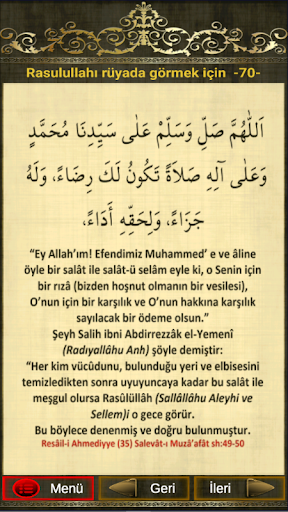 Rasulullahı rüyada görmek için -70-
اَللّٰهُمَّ صَلِّ وَسَلِّمْ عَلٰى سَيِّدِنَا مُحَمَّدٍ
وَعَلٰى آلِهِ صَلَاةً تَكُونُ لَكَ رِضَاءً، وَلَهُ
جَزَاءً، وَلِحَقِّهِ أَدَاءً،
“Ey Allah’ım! Efendimiz Muhammed’ e ve âline
öyle bir salât ile salât-ü selâm eyle ki, o Senin için
bir rızâ (bizden hoşnut olmanın bir vesilesi),
O’nun için bir karşılık ve O’nun hakkına karşılık
sayılacak bir ödeme olsun.”
Şeyh Salih ibni Abdirrezzâk el-Yemenî
(Radıyallâhu Anh) şöyle demiştir:
“Her kim vücûdunu, bulunduğu yeri ve elbisesini
temizledikten sonra uyuyuncaya kadar bu salât ile
meşgul olursa Rasûlüllâh (Sallâllâhu Aleyhi ve
Sellem)i o gece görür.
Bu böylece denenmiş ve doğru bulunmuştur.
Resâil-i Ahmediyye (35) Salevât-ı Muzâ’afât sh:49-50
Menü Geri İleri